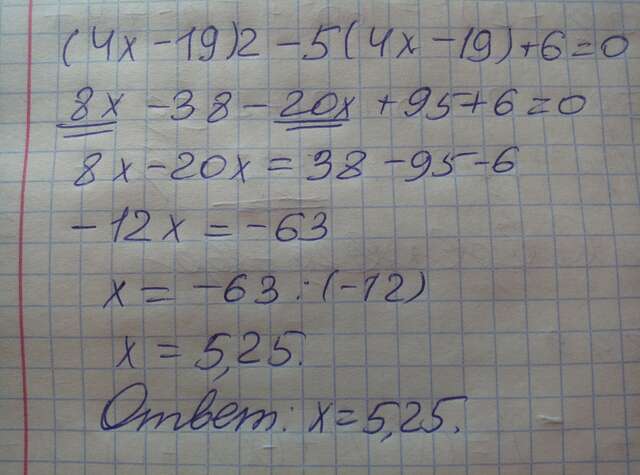 (4x-19)2-5(4x-19)+6=0
8x-38-20x+95+6=0
8x-20x=38-95-6
-12x=-63
x=-63:(-12)
x=5,25.
Ответ: x=5,25.